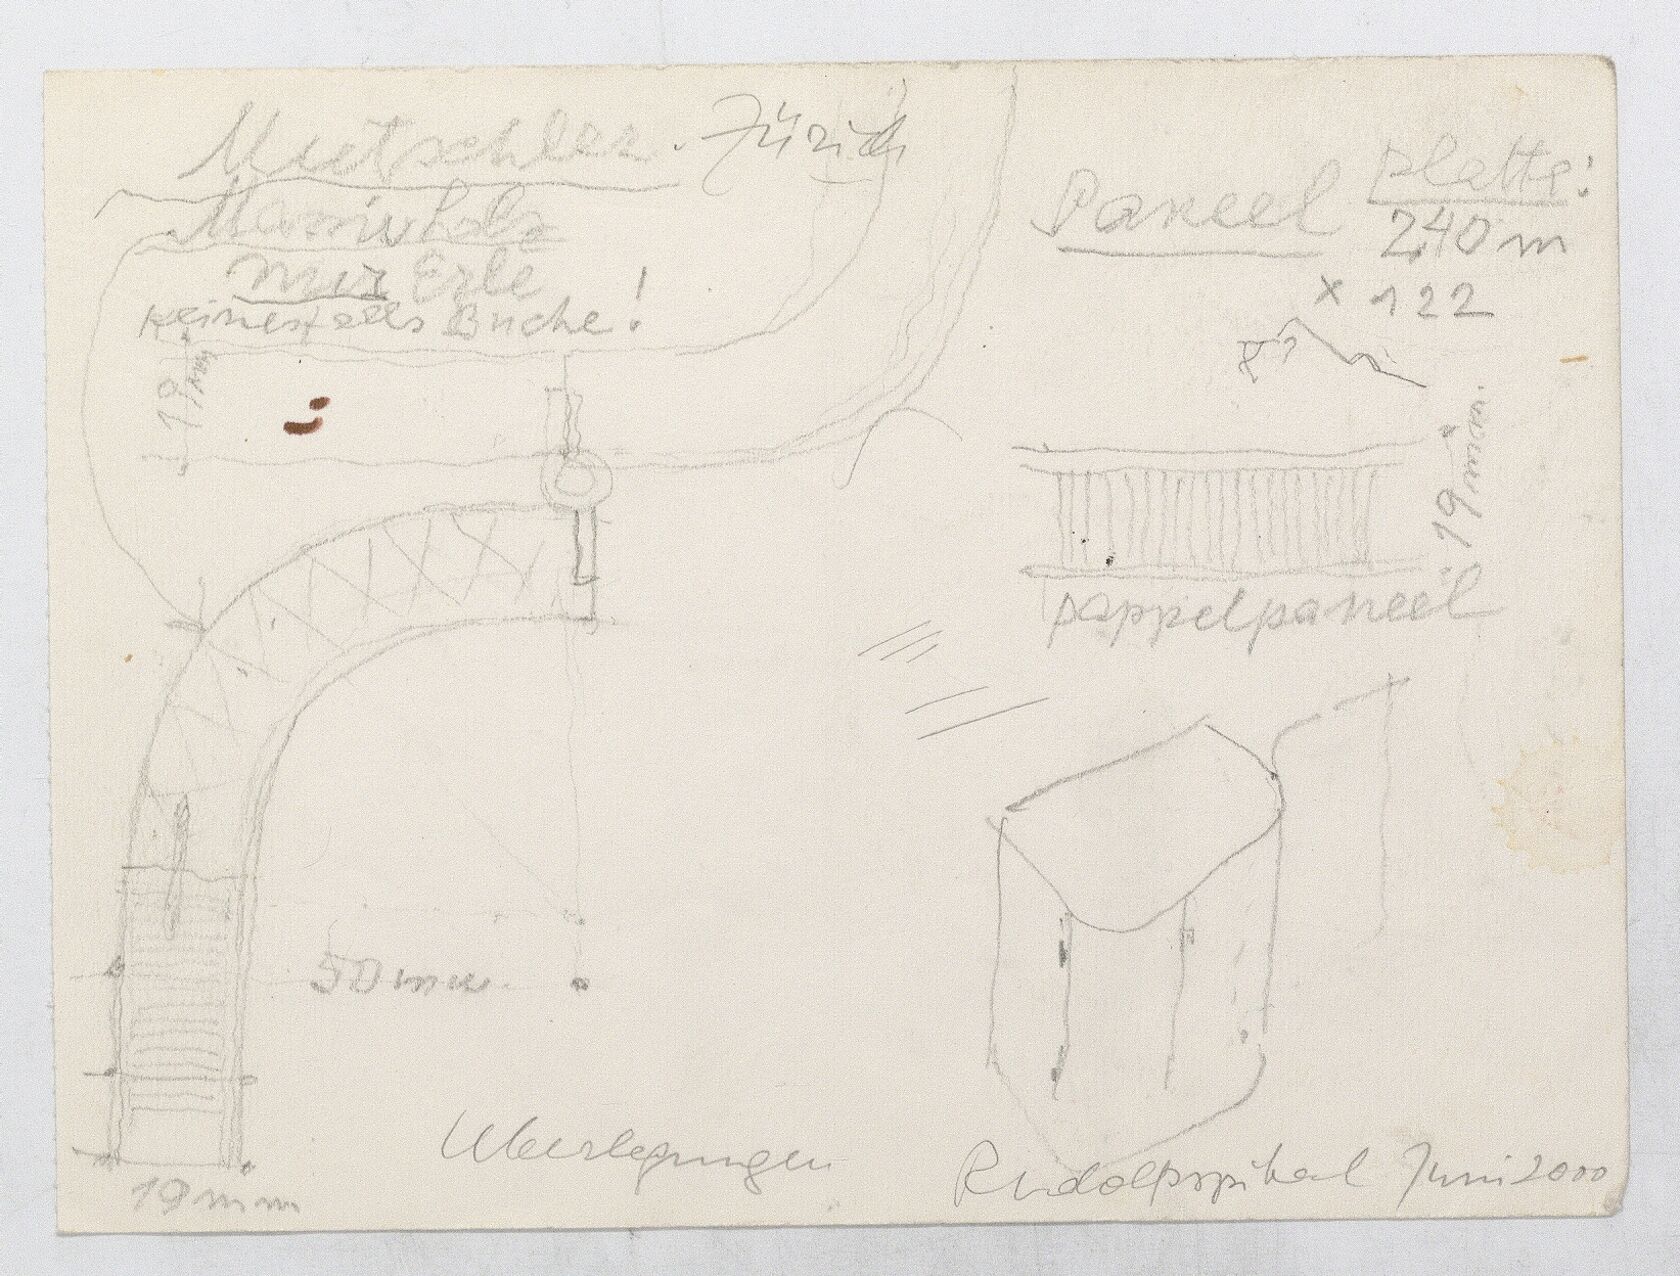 Mutschler. Zürich
Massivholz
nur Erle
keinesfalls Buche!
19 mm
Paneel Platte:
2,40 m
x 122
19 mm
pappelpaneel
50 mm.
19 mm
Überlegungen
Rudolfspital Juni 2000